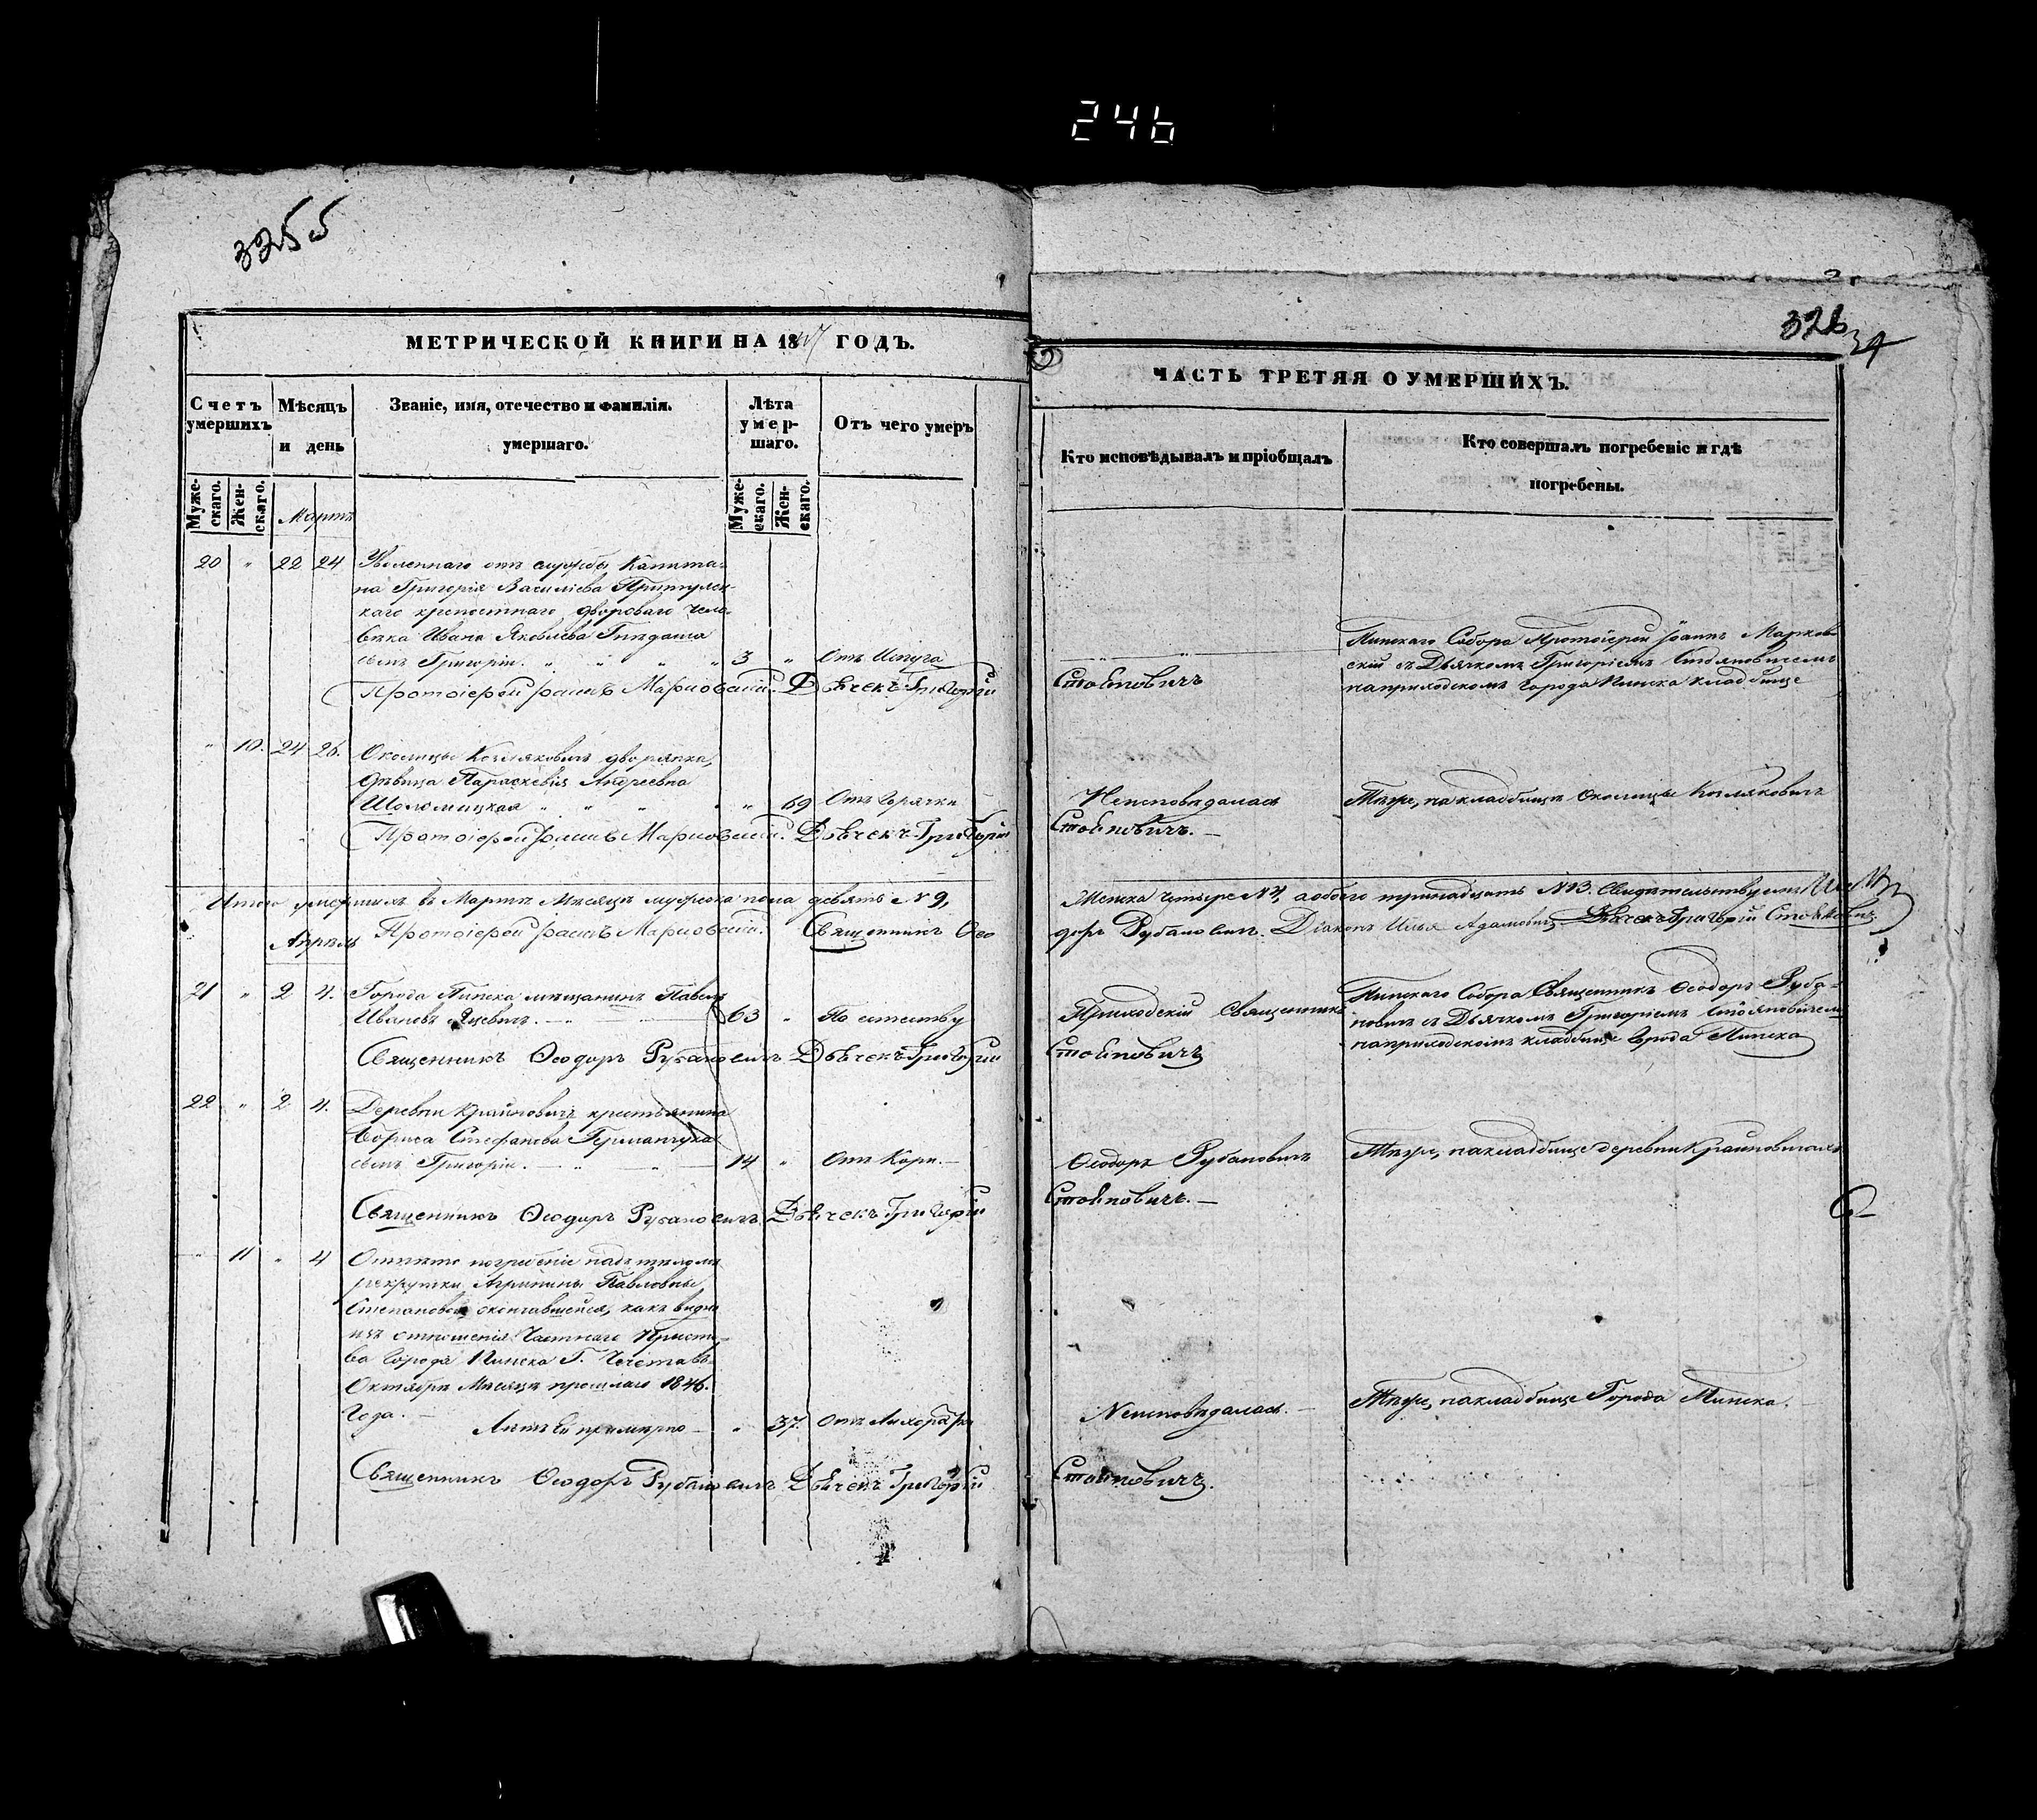 246
3255
МЕТРИЧЕСКОЙ КНИГИ НА 1847 ГОДЪ.
Счетъ умершихъ
Мѣсяцъ и день
Званіе, имя, отечество и фамилія. умершаго.
Лѣта умершаго.
Отъ чего умеръ
Мужескаго.
Женскаго.
Мартъ
Мужескаго.
Женскаго.
20 " 22 24 Уволеннаго отъ службы Капита-
на Григорія Василіева
каго крепостнаго двороваго чело-
вѣка Ивана Яковлева
сынъ Григорій. " " " " 3 " Отъ Испуга
Протоіерей Іоаннъ Марковскій. Дьячекъ Григорій
" 10. 24 26. Околицы Козляковичъ дворянка,
дѣвица Параскевія Андреевна
" " " " " 69 Отъ Горячки
Протоіерей Іоаннъ Марковскій. Дьячекъ Григорій
Итого умершихъ въ Мартѣ Мѣсяцѣ мужеска пола девять №9,
Апрѣль Протоіерей Іоаннъ Марковскій. Священникъ Ѳео
21 " 2 4. Города Пинска мѣщанинъ Павелъ
Ивановъ Яцевичъ. 63 " По естеству
Священникъ Ѳеодоръ Рубановичъ Дьячекъ Григорій
22 " 2 4. Деревни Крайновичъ крестьянина
Бориса Стефанова Германчука
сынъ Григорій. 14 " Отъ Кори.
Священникъ Ѳеодоръ Рубановичъ Дьячекъ Григорій
" 11 " 4 Отпѣто погребеніе надъ тѣломъ
рекрутки Агрипины Павловны
Степановой скончавшейся, какъ видно
изъ отношенія Частнаго Приста-
ва Города Пинска Г. въ
Октябрѣ Мѣсяцѣ прошлаго 1846.
Года.
Лѣтъ Ей примѣрно " 37. Отъ Лихорадки
Священникъ Ѳеодоръ Рубановичъ Дьячекъ Григорій
326
34
ЧАСТЬ ТРЕТЯЯ О УМЕРШИХЪ.
Кто исповѣдывалъ и пріобщалъ
Кто совершалъ погребеніе и гдѣ погребены.
Пинскаго Собора Протоіерей Іоаннъ Марков-
скій съ Дьячкомъ Григоріемъ Стояновичемъ
на приходскомъ города Пинска кладбище
Стояновичъ
Неисповѣдалась
Тѣже, на кладбищѣ околицы Козляковичъ
Стояновичъ.
Женска четыре №4, а обоего тринадцать №13. Свидѣтельствуемъ
доръ Рубановичъ. Діаконъ Илья Адамовичъ Дьячекъ Григорій Стояновичъ.
Приходскій Священникъ
Пинскаго Собора Священникъ Ѳеодоръ Руба-
новичъ съ Дьячкомъ Григоріемъ Стояновичемъ
на приходскомъ кладбище Города Пинска
Стояновичъ
Ѳеодоръ Рубановичъ
Тѣже, на кладбище деревни Крайновичахъ
Стояновичъ.
Неисповѣдалась.
Тѣже, на кладбище Города Пинска.
Стояновичъ.